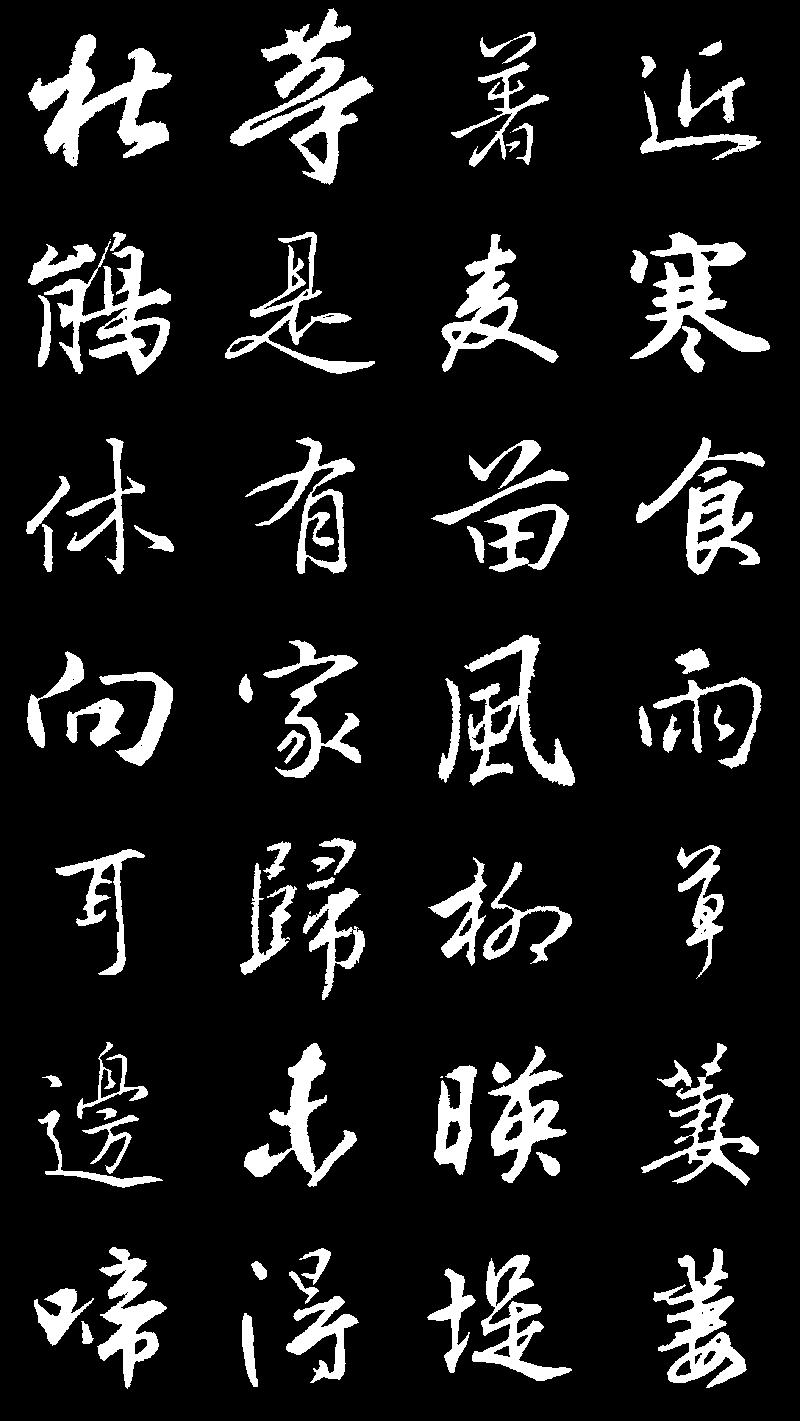 近寒食雨草萋萋
著麦苗風柳暎堤
等是有家歸未得
杜鵑休向耳邊啼